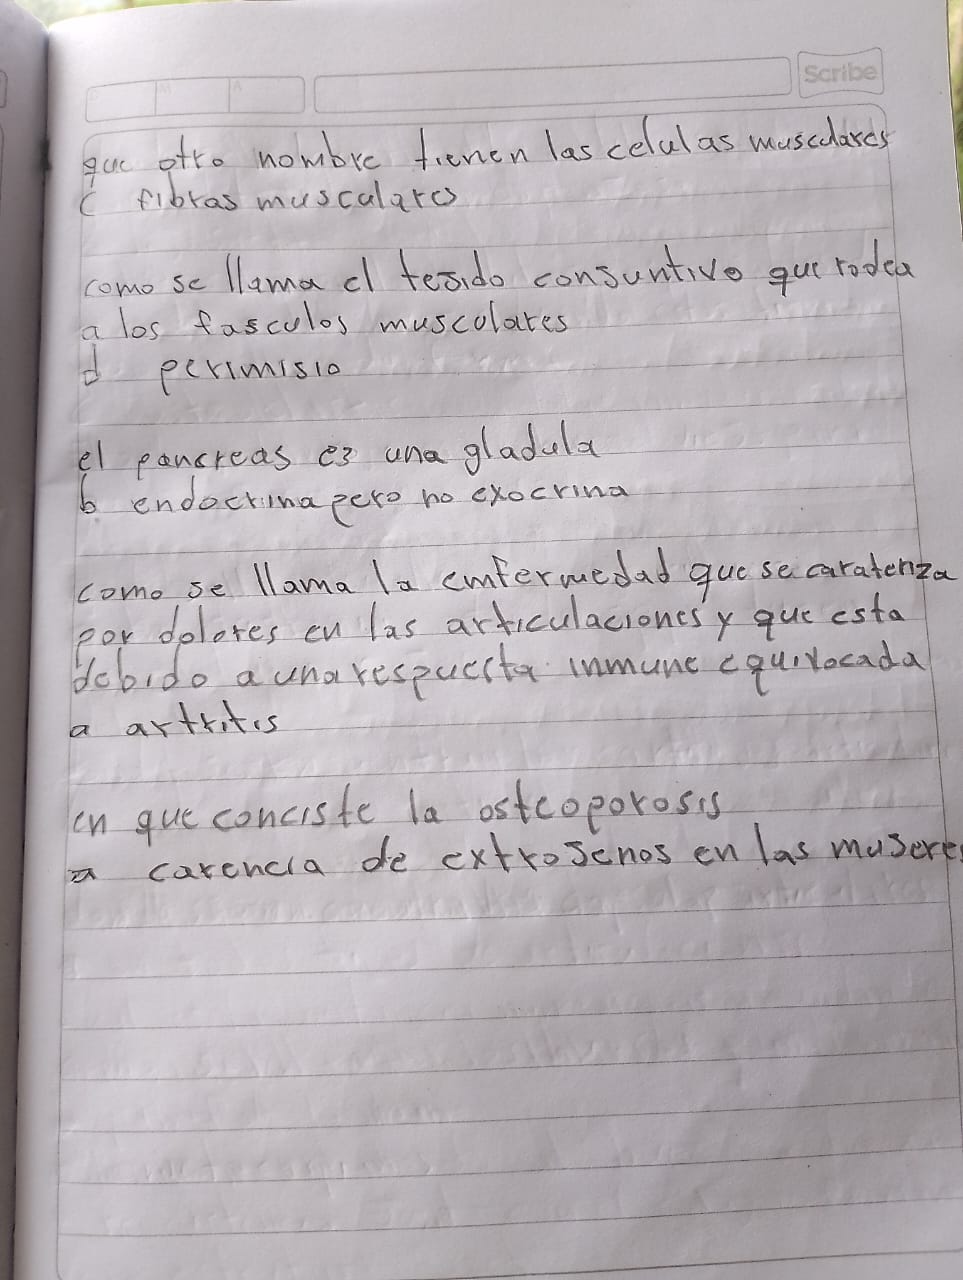 Scribe
que otro nombre tienen las celulas musculares
c fibras musculares
como se llama el tesido consuntivo que rodea
a los fasculos musculares
d perimisio
el pancreas es una gladula
b. endocrina pero no exocrina
como se llama la emfermedad que se carateriza
por dolores en las articulaciones y que esta
debido a una respuesta inmune equivocada
a artritis
en que conciste la osteoporosis
a carencia de extrosenos en las museres